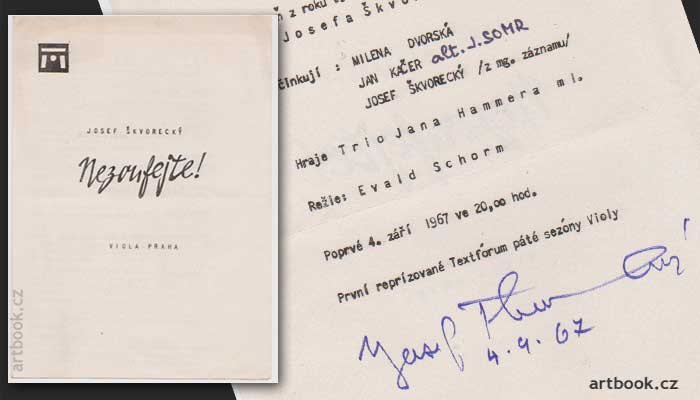 JOSEF ŠKVORECKÝ
Nezoufejte!
VIOLA PRAHA
artbook.cz
z roku
Josefa Škvo
činkují : MILENA DVORSKÁ
JAN KAČER alt. J. SOMR
JOSEF ŠKVORECKÝ /z mg. záznamu/
Hraje Trio Jana Hammera ml.
Režie: Evald Schorm
Poprvé 4. září 1967 ve 20,00 hod.
První reprízované Textfórum páté sezóny Violy
Josef Škvorecký
4. 9. 67
artbook.cz